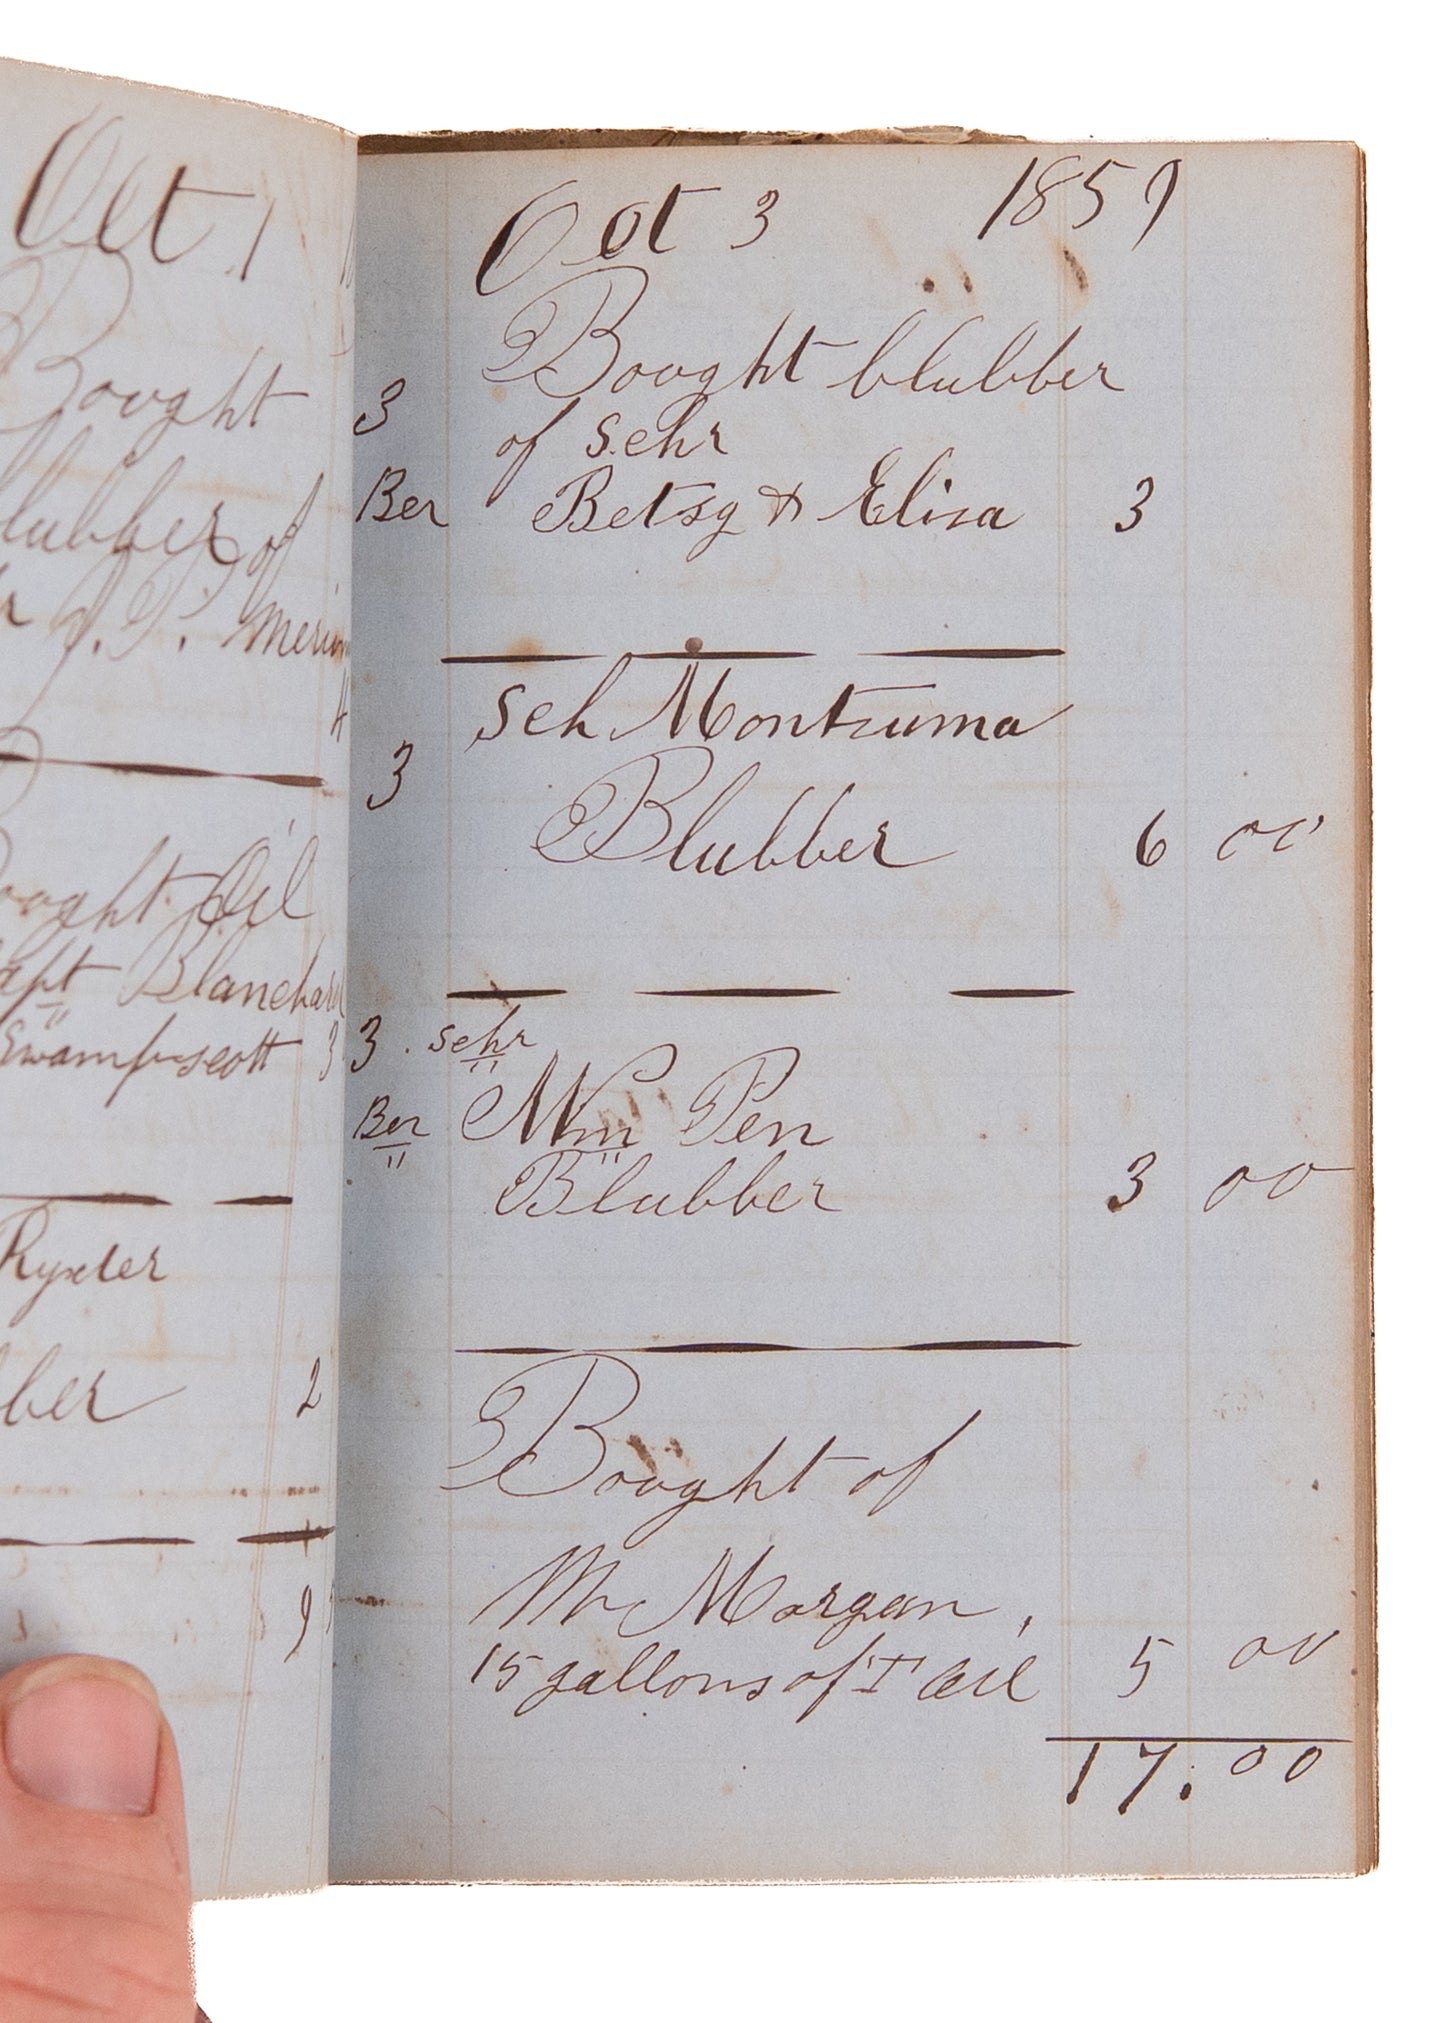 Oct 1
Bought
lubber of
J. P. Merim
4
ought Oil
apt Blanchard
Swampscott 3
Ryder
ber 2
9
Oct 3 1859
Bought blubber
3
of Schr
Ber Betsy & Eliza 3
Sch Montzuma
3
Blubber 6 00
3. Schr
Ber Wm Pen
Blubber 3 00
Bought of
Mr Morgan,
15 gallons of T Oil 5 00
17.00